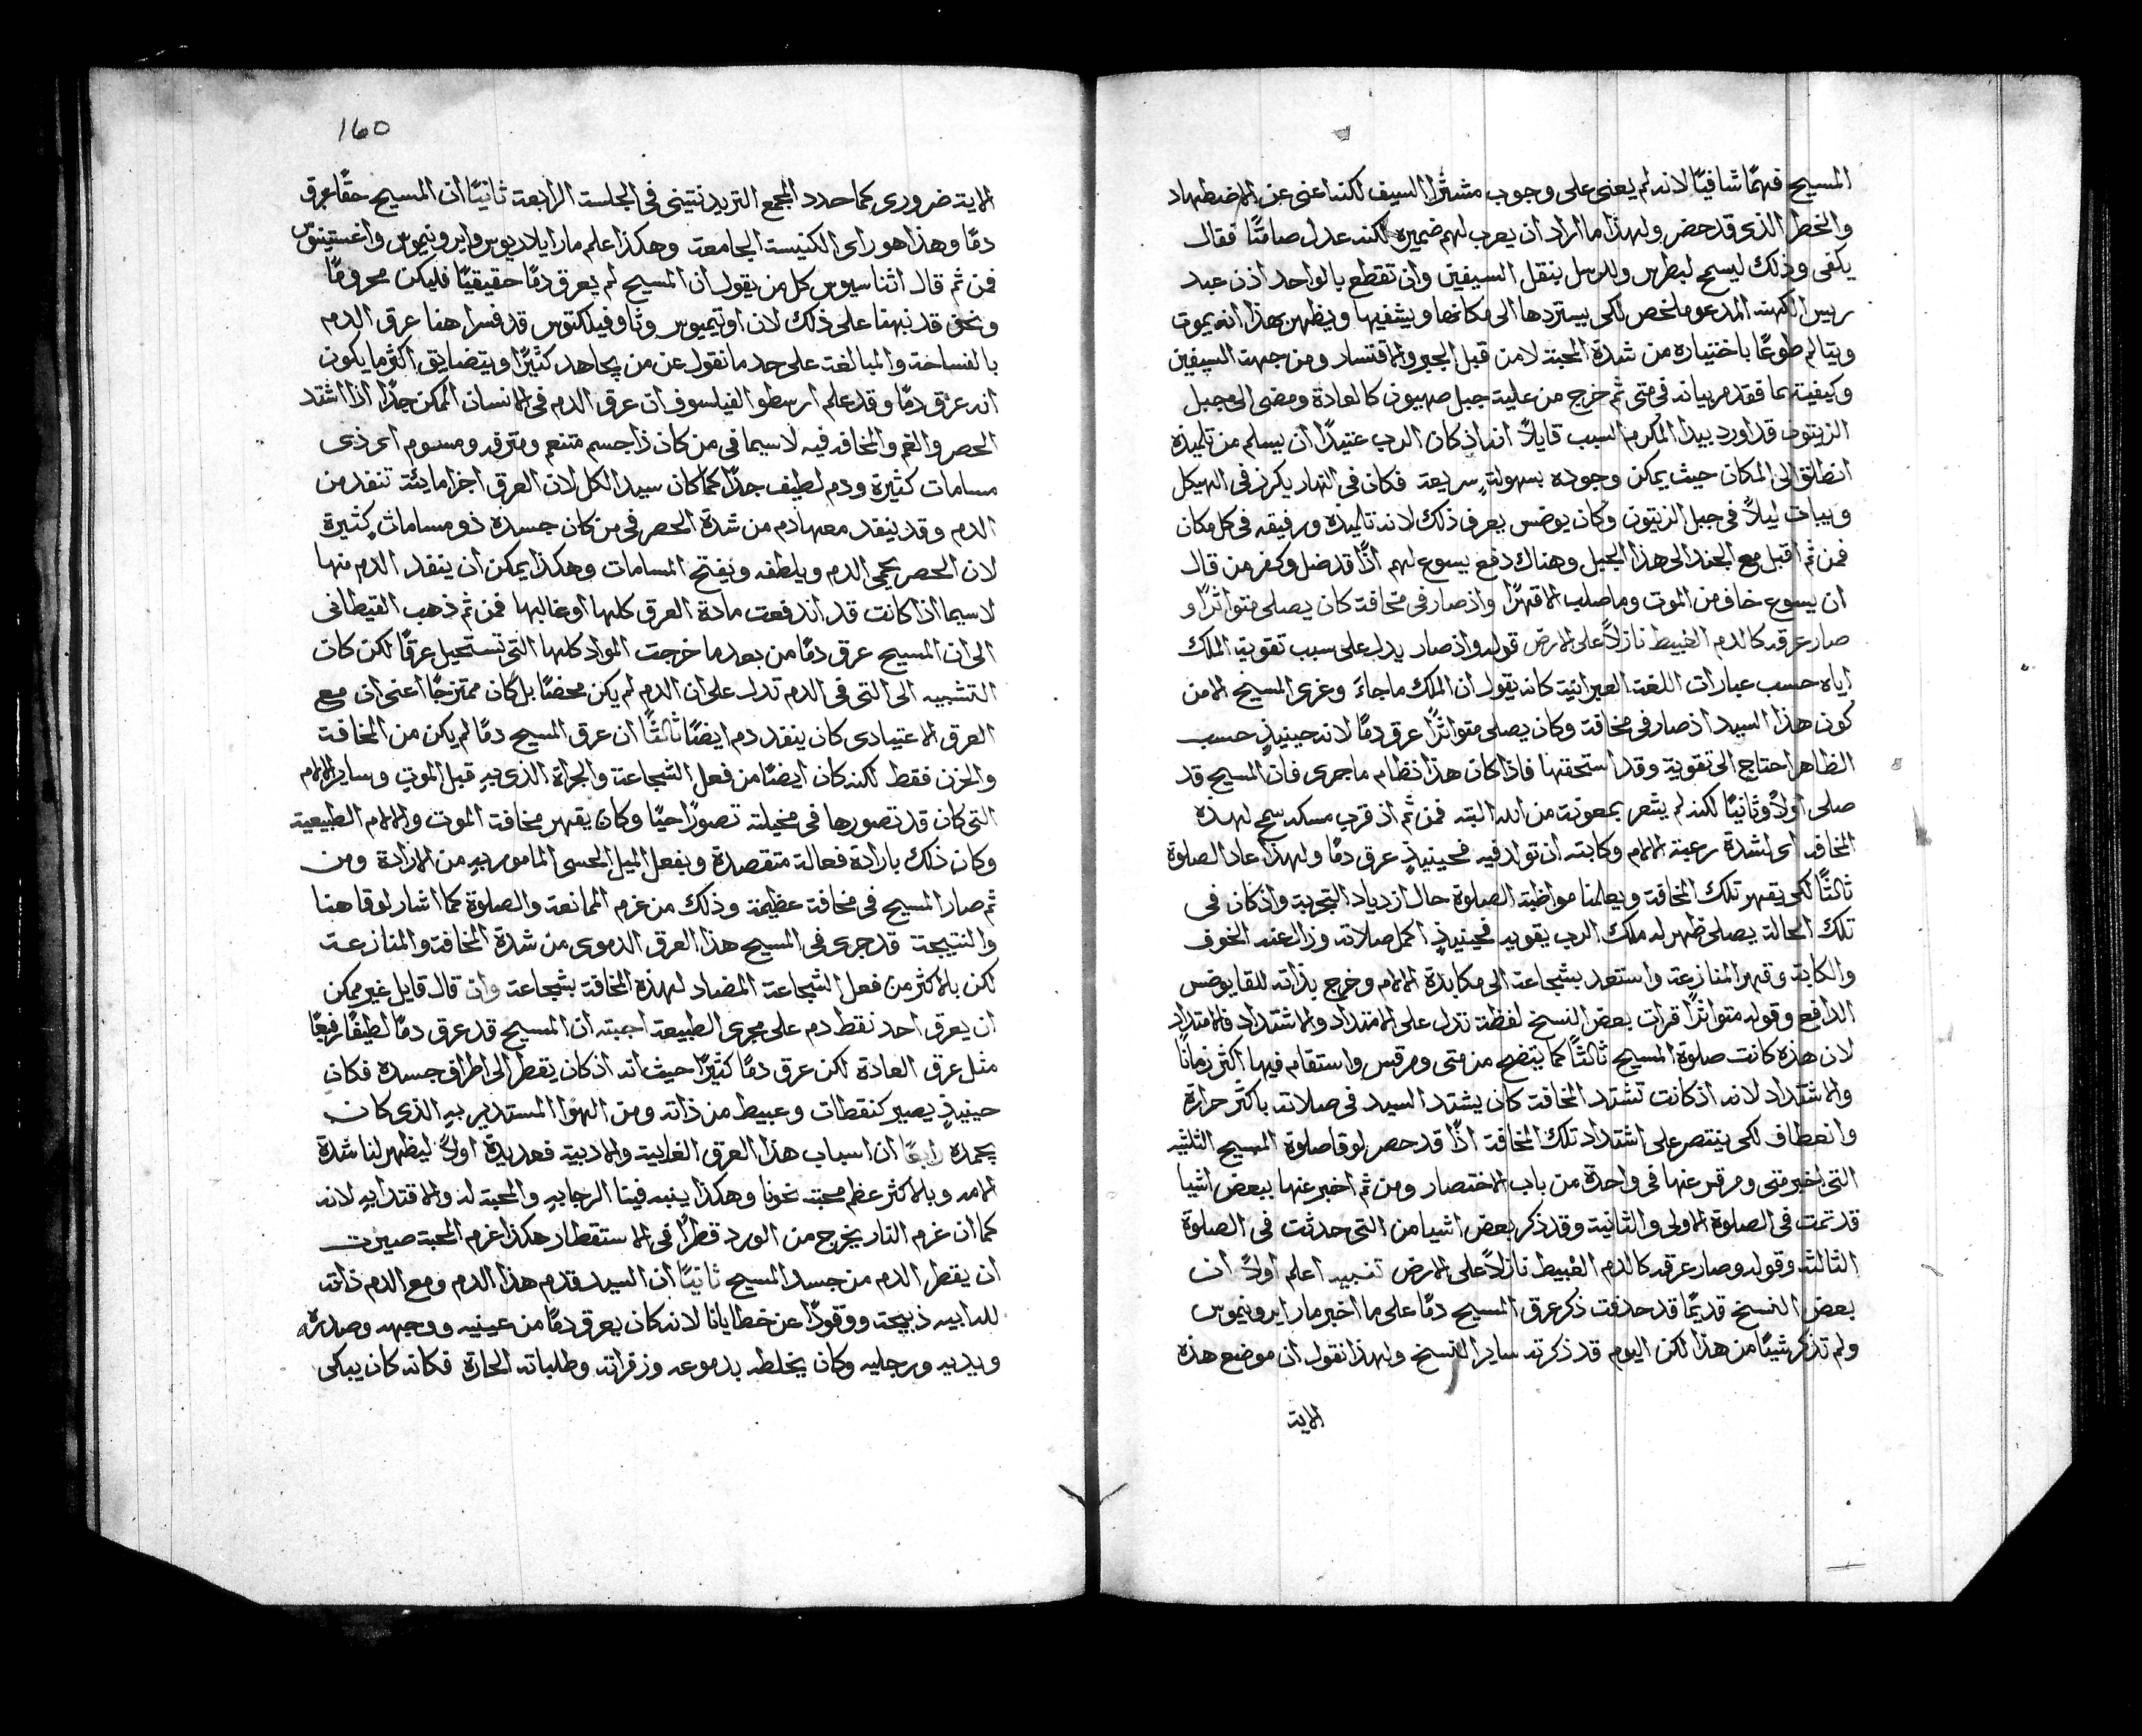 المسيح فهمًا شافيًا لانه لم يعنى على وجوب مشترا السيف لكنه اعنى عن الاضطهاد
والخطر الذى قد حضر ولهذا ما اراد ان يعرب لهم ضميره لكنه عدل صامتًا فقال
يكفى وذلك ليسمح لبطرس وللرسل بنقل السيفين وان تقطع بالواحد اذن عبد
ريس الكهنه المدعو ملخص لكى يستردها الى مكانها ويشفيها ويظهر بهذا انه يموت
ويتالم طوعًا باختياره من شدة المحبة لا من قبل الجبر والاقتساد ومن جهة السيفين
وكيفيتهما فقد مر بيانه فى متى ثم خرج من علية جبل صهيون كالعادة ومضى الى جبل
الزيتون قد اورد بيدا المكرم السبب قايلاً انه اذ كان الرب عتيدًا ان يسلم من تلميذه
انطلق الى المكان حيث يمكن وجوده بسهولةٍ سريعة فكان فى النهار يكرز فى الهيكل
ويبات ليلاً فى جبل الزيتون وكان يوضس يعرف ذلك لانه تلميذه ورفيقه فى كل مكان
فمن ثم اقبل مع الجند الى هذا الجبل وهناك دفع يسوع لهم اذًا قد ضل وكفر من قال
ان يسوع خاف من الموت وما صلب الا قهرًا واذ صار فى مخافة كان يصلى متواترًا و
صار عرقه كالدم العبيط نازلاً على الارض قوله واذ صار يدل على سبب تقوية الملك
اياه حسب عبارات اللغة العبرانية كانه يقول ان الملك ما جاءَ وعزى المسيح الا من
كون هذا السيد اذ صار فى مخافة وكان يصلى متواترًا عرق دمًا لانه حينيذٍ حسب
الظاهر احتاج الى تقوية وقد استحقها فاذا كان هذا نظام ما جرى فان المسيح قد
صلى اولاً وثانيًا لكنه لم يشعر بمعونة من الله البته فمن ثم اذ قرب مسكه سمح لهذه
المخافه اى لشدة رعبة الالام وكابته ان تولد فيه فحينيذٍ عرق دمًا ولهذا عاد الصلوة
ثالثًا لكى يقهر تلك المخافة ويعلمنا مواظبة الصلوة حال ازدياد التجربة واذ كان فى
تلك الحالة يصلى ظهر له ملك الرب يقويه فحينيذٍ اكمل صلاته وزال عنه الخوف
والكابة وقهر المنازعة واستعد بشجاعة الى مكابدة الالام وخرج بذاته للقا يوضس
الدافع وقوله متواترًا قرات بعض النسخ لفظة تدل على الامتداد والاشتداد فالامتداد
لان هذه كانت صلوة المسيح ثالثًا كما يتضح من متى ومرقس واستقام فيها اكثر زمانًا
والاشتداد لانه اذ كانت تشتد المخافة كان يشتد السيد فى صلاته باكثر حرارة
وانعطاف لكى ينتصر على اشتداد تلك المخافة اذًا قد حصر لوقا صلوة المسيح الثلثه
التى اخبر متى ومرقس عنها فى واحدة من باب الاختصار ومن ثم اخبر عنها ببعض اشيا
قد تمت فى الصلوة الاولى والثانية وقد ذكر بعض اشيا من التى حدثت فى الصلوة
الثالثه وقوله وصار عرقه كالدم العبيط نازلاً على الارض تنبيه اعلم اولاً ان
بعض النسخ قديمًا قد حذفت ذكر عرق المسيح دمًا على ما اخبر مار ايرونيموس
ولم تذكر شيئًا من هذا لكن اليوم قد ذكرته ساير النسخ ولهذا نقول ان موضع هذه
الاية
160
الاية ضرورى كما حدد المجمع التريدنتينى فى الجلسة الرابعة ثانيًا ان المسيح حقًا عرق
دمًا وهذا هو راى الكنيسة الجامعة وهكذا علم مار ايلاريوس وايرونيموس واغستينوس
فمن ثم قال اثناسيوس كل من يقول ان المسيح لم يعرق دمًا حقيقيًا فليكن محرومًا
ونحن قد نبهنا على ذلك لان اوتيميوس وثاوفيلكتوس قد فسرا هنا عرق الدم
بالفساحة والمبالغة على حد ما نقول عن من يجاهد كثيرًا ويتضايق اكثر ما يكون
انه عرق دمًا وقد علم ارسطو الفيلسوف ان عرق الدم فى الانسان الممكن جدًا اذا اشتد
الحصر والغم والمخافه فيه لا سيما فى من كان ذا جسم متنعم ومترفه ومسوم اى ذى
مسامات كثيرة ودم لطيف جدًا كما كان سيد الكل لان العرق اجزا مايئة تنفد من
الدم وقد ينفد معها دم من شدة الحصر فى من كان جسده ذو مساماتٍ كثيرة
لان الحصر يحمى الدم ويلطفه ويفتح المسامات وهكذا يمكن ان ينفد الدم منها
لا سيما اذا كانت قد اندفعت مادة العرق كلها او غالبها فمن ثم ذهب القيطانى
الى ان المسيح عرق دمًا من بعد ما خرجت المواد كلها التى تستحيل عرقًا لكن كان
التشبيه الى التى فى الدم تدل على ان الدم لم يكن محضًا بل كان ممتزجًا اعنى ان مع
العرق الاعتيادى كان ينفد دم ايضًا ثالثًا ان عرق المسيح دمًا لم يكن من المخافة
والحزن فقط لكنه كان ايضًا من فعل الشجاعة والجراة الذى بهِ قبل الموت وساير الالام
التى كان قد تصورها فى مخيلته تصورًا حيًا وكان يقهر مخافة الموت والالام الطبيعية
وكان ذلك بارادة فعالة متقصدة وبفعل الميل الحسى المامور بهِ من الارادة ومن
ثم صار المسيح فى مخافة عظيمة وذلك من عزم الممانعة والصلوة كما اشار لوقا هنا
والنتيجة قد جرى فى المسيح هذا العرق الدموى من شدة المخافة والمنازعة
لكن بالاكثر من فعل الشجاعة المضاد لهذه المخافة بشجاعة وان قال قايل غير ممكن
ان يعرق احد نقط دم على مجرى الطبيعة اجبته ان المسيح قد عرق دمًا لطيفًا رفيعًا
مثل عرق العادة لكن عرق دمًا كثيرًا حيث انه اذ كان يقطر الى اطراف جسده فكان
حينيذٍ يصير كنقطات وعبيط من ذاته ومن الهوا المستدير بهِ الذى كان
يجمده رابعًا ان اسباب هذا العرق الغايية والادبية فعديدة اولاً ليظهر لنا شدة
الامه وبالاكثر عظم محبته نحونا وهكذا ينبه فينا الرجا بهِ والمحبة له والاقتدا بهِ لانه
كما ان غرم النار يخرج من الورد قطرًا فى الاستقطار هكذا غرم المحبة صيرت
ان يقطر الدم من جسد المسيح ثانيًا ان السيد قدم هذا الدم ومع الدم ذاته
لله ابيه ذبيحة ووقودًا عن خطايانا لانه كان يعرق دمًا من عينيه ووجهه وصدره
ويديه ورجليه وكان يخلطه بدموعه وزفراته وطلباته الحارة فكانه كان يبكى